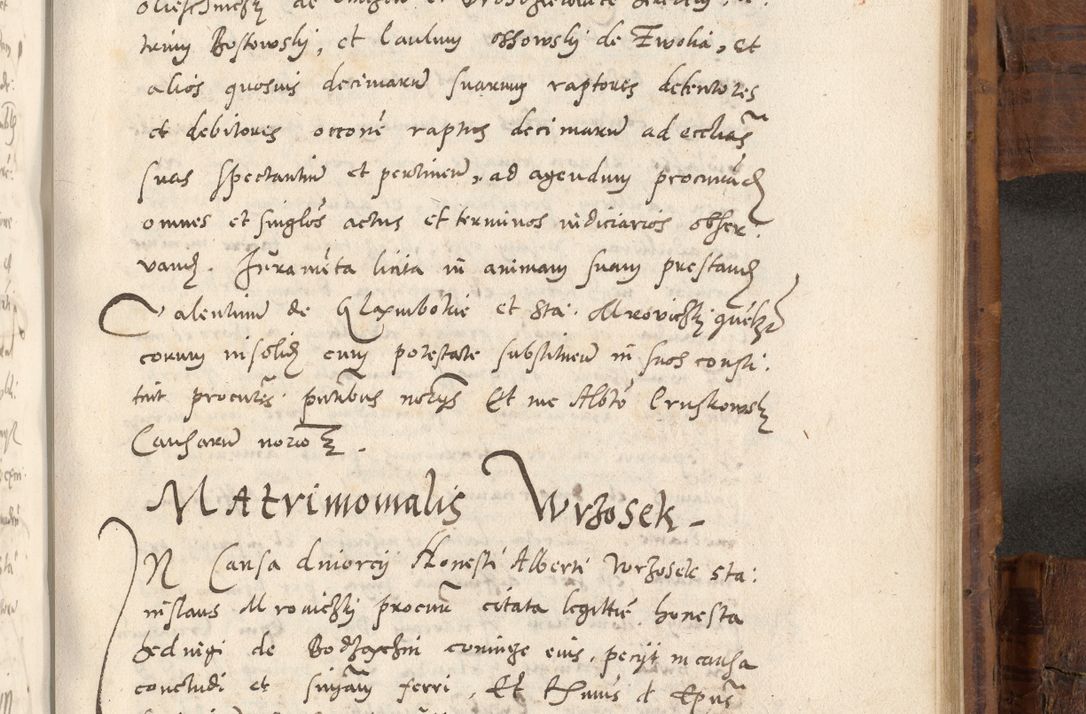 trium Bostowskÿ, et Paulum Ossowskÿ de Zwola, et
alios quosuis decimarum suarum raptores detentores
et debitores occone raptus decimarum ad ecclias
suas spectantium et pertinen, ad agendum procurand
omnes et singlos actus et terminos iudiciarios obser:
vand. Juramenta licita in animam suam prestand
Valentinum de et Sta: Mrovichskÿ
eorum insolid cum potestate substituen in suos consti:
tuit procures pntibus notÿs Et me Albto Cruskowskÿ
Causarum norio
Matrimonialis Wrzosek
IN Causa diuorcÿ Honesti Alberti Wrzosek sta:
nislaus Mrovichskÿ procur citata legittie honesta
hedvigi de Bodzachin coniuge eius, petÿt in causa
concludi et sniam ferri, Et Rndus d Epus